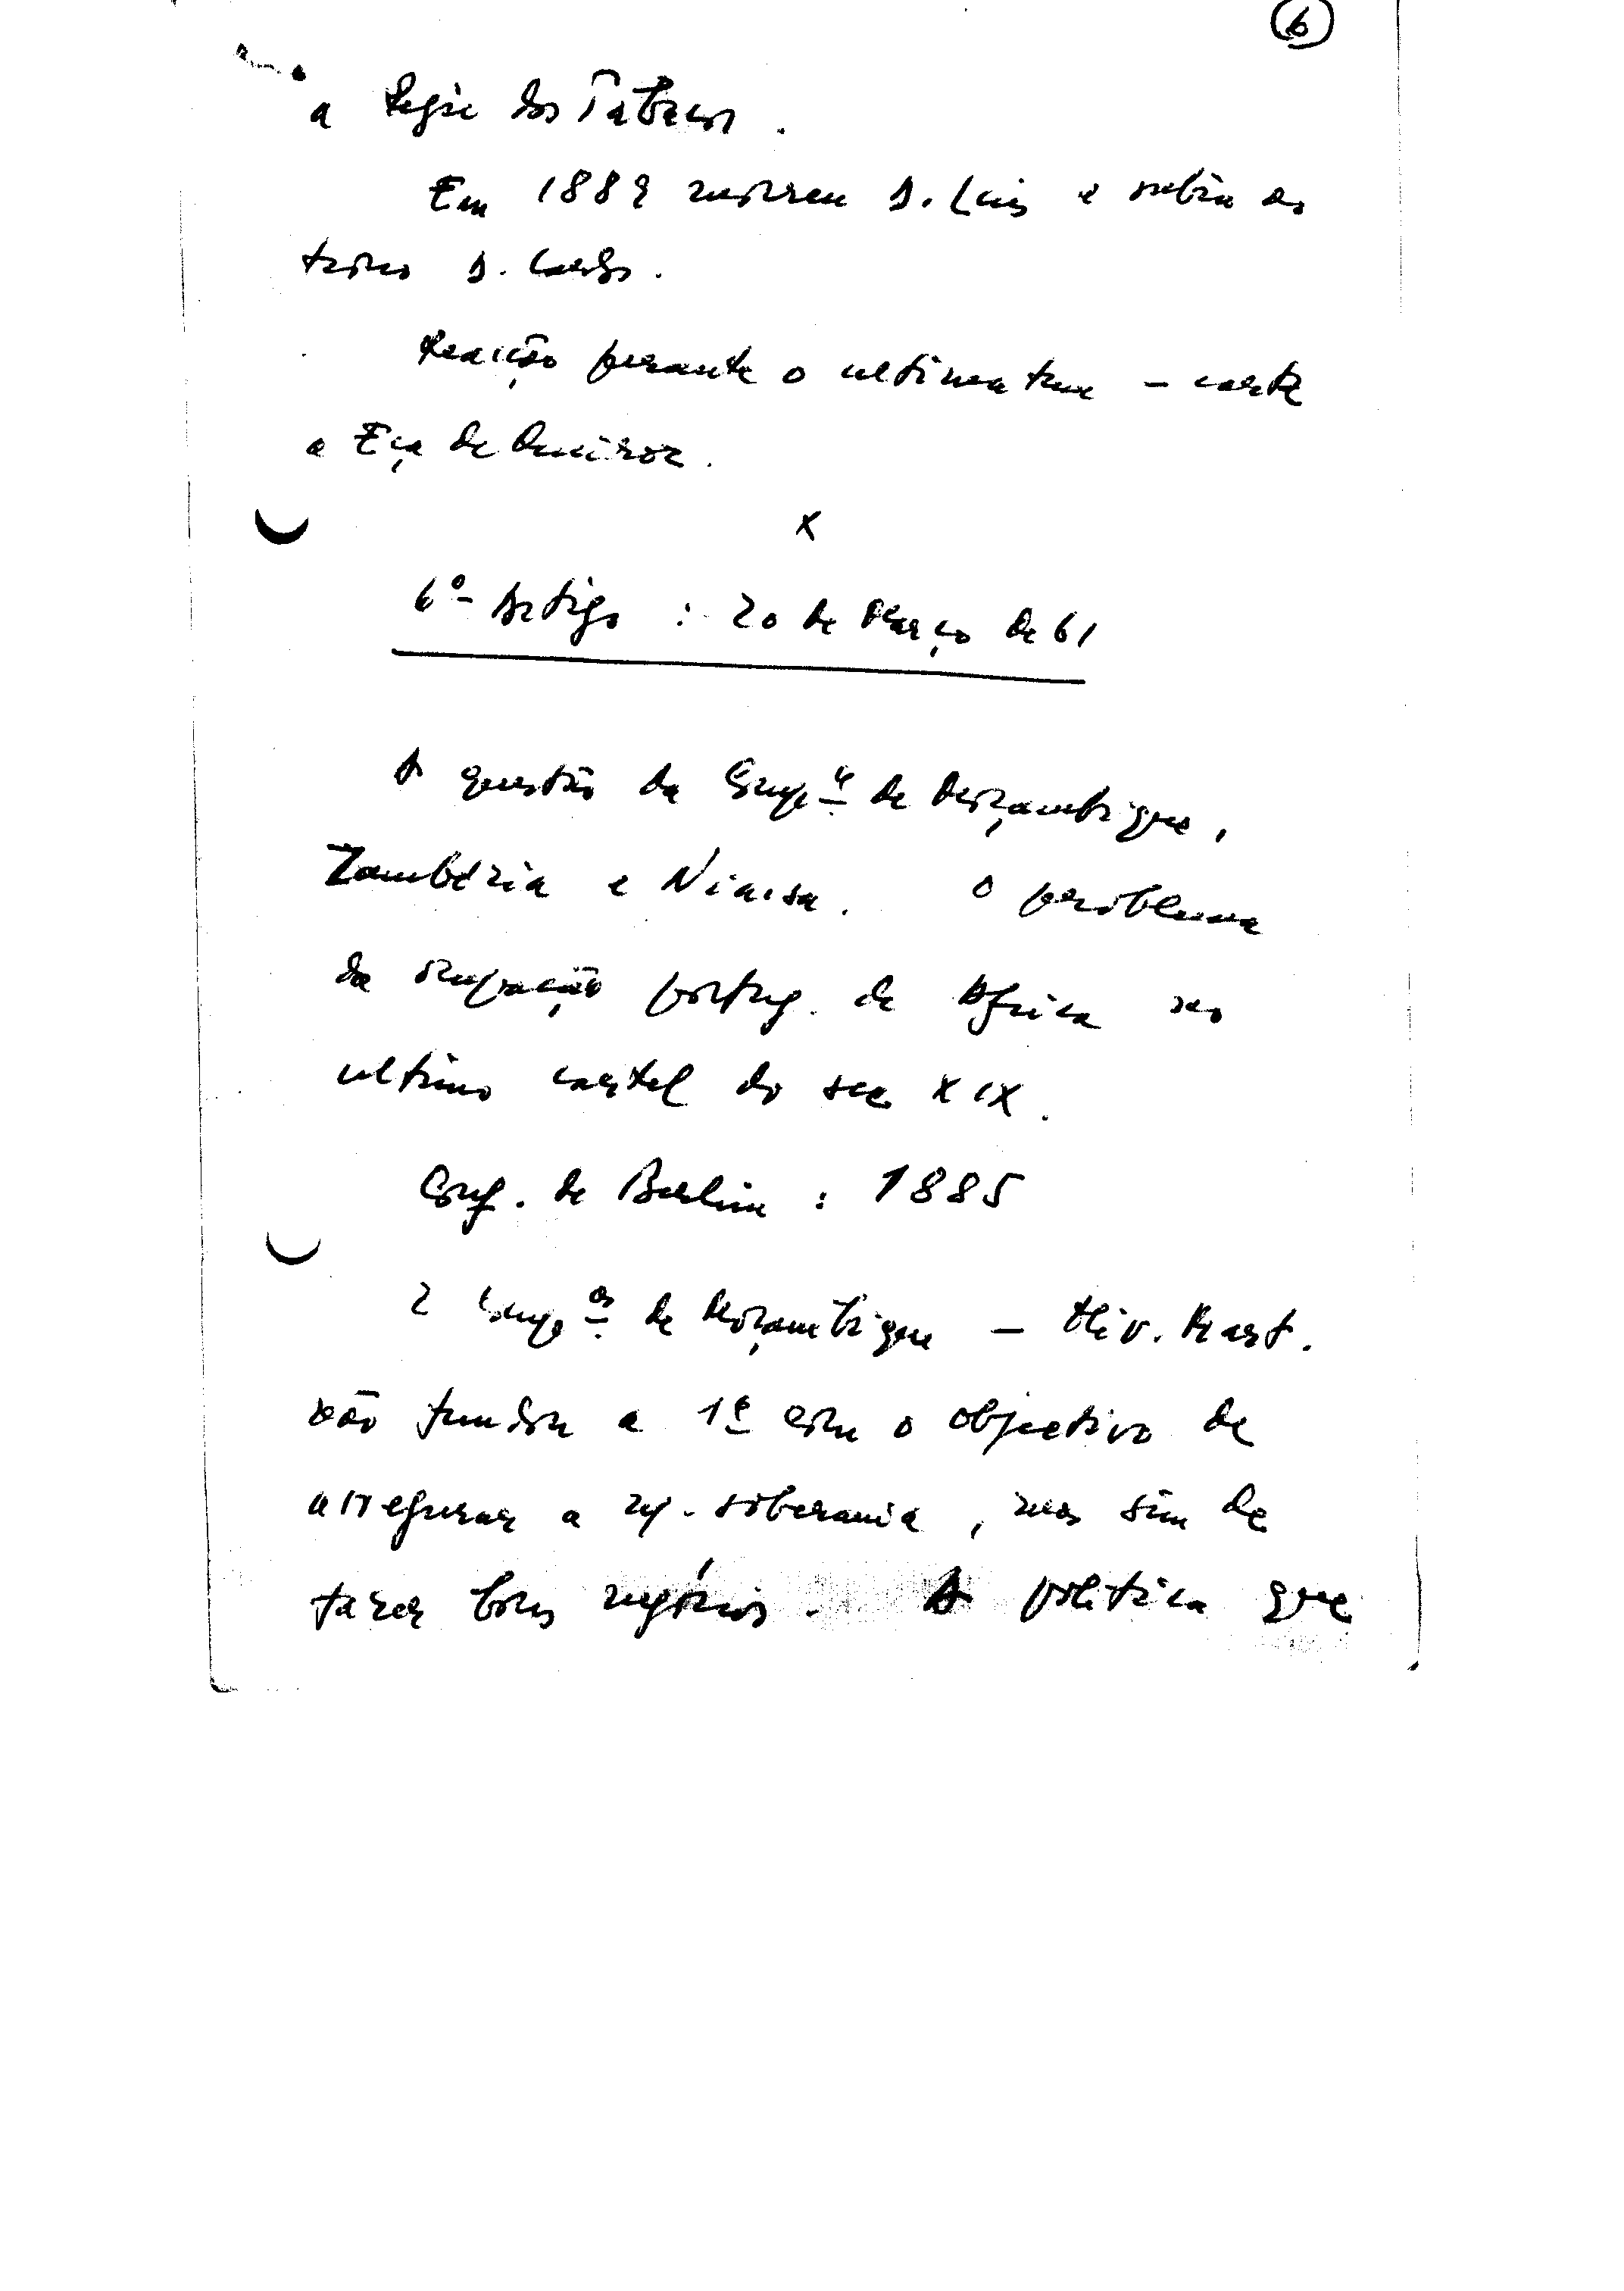 6
a Régie dos Tabacos.
Em 1889 morreu D. Luis e subiu ao
trono D. Carlos.
Reacção perante o ultimatum – carta
a Eça de Queiroz.
x
6º Artigo : 20 de Março de 61
A questão da Comp.ª de Moçambique,
Zambézia e Niassa. O problema
da ocupação portug. de Africa no
ultimo cartel do sec XIX.
Conf. de Berlim : 1885
2 Comp.as de Moçambique – Oliv. Mart.
não fundou a 1ª com o objectivo de
assegurar a n/ soberania, mas sim de
fazer bons negócios. A politica que